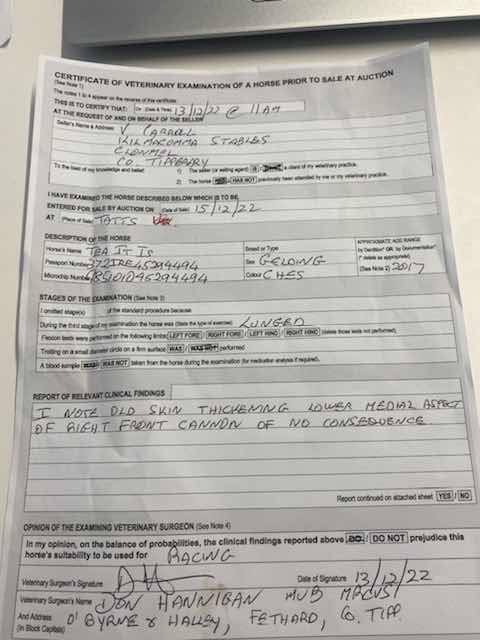 CERTIFICATE OF VETERINARY EXAMINATION OF A HORSE PRIOR TO SALE AT AUCTION
(See Note 1)
The notes 1 to 4 appear on the reverse of this certificate.
THIS IS TO CERTIFY THAT: On (Date & Time) 13/12/22 @ 11AM
AT THE REQUEST OF AND ON BEHALF OF THE SELLER
Seller's Name & Address V CARROLL
KILMACOMMA STABLES
CLONMEL
CO. TIPPERARY
To the best of my knowledge and belief: 1) The seller (or selling agent) IS / a client of my veterinary practice.
2) The horse HAS NOT previously been attended by me or my veterinary practice.
I HAVE EXAMINED THE HORSE DESCRIBED BELOW WHICH IS TO BE
ENTERED FOR SALE BY AUCTION ON (Date of Sale) 15/12/22
AT (Place of Sale) TATTS
DESCRIPTION OF THE HORSE
APPROXIMATE AGE RANGE
by Dentition* OR by Documentation*
(* delete as appropriate)
(See Note 2) 2017
Horse's Name TEA IT IS Breed or Type
Passport Number 372IRE45294494 Sex GELDING
Microchip Number Colour CHES
STAGES OF THE EXAMINATION (See Note 3)
I omitted stage(s) of the standard procedure because
During the third stage of my examination the horse was (State the type of exercise) LUNGED
Flexion tests were performed on the following limbs: LEFT FORE / RIGHT FORE / LEFT HIND / RIGHT HIND (delete those tests not performed)
Trotting on a small diameter circle on a firm surface WAS / WAS NOT performed
A blood sample WAS / WAS NOT taken from the horse during the examination (for medication analysis if required).
REPORT OF RELEVANT CLINICAL FINDINGS
I NOTE OLD SKIN THICKENING LOWER MEDIAL ASPECT
OF RIGHT FRONT CANNON OF NO CONSEQUENCE
Report continued on attached sheet YES / NO
OPINION OF THE EXAMINING VETERINARY SURGEON (See Note 4)
In my opinion, on the balance of probabilities, the clinical findings reported above DO / DO NOT prejudice this
horse's suitability to be used for RACING
Veterinary Surgeon's Signature Date of Signature 13/12/22
Veterinary Surgeon's Name DON HANNIGAN MVB MRCVS
And Address O'BYRNE & HALLEY, FETHARD, CO. TIPP.
(in Block Capitals)